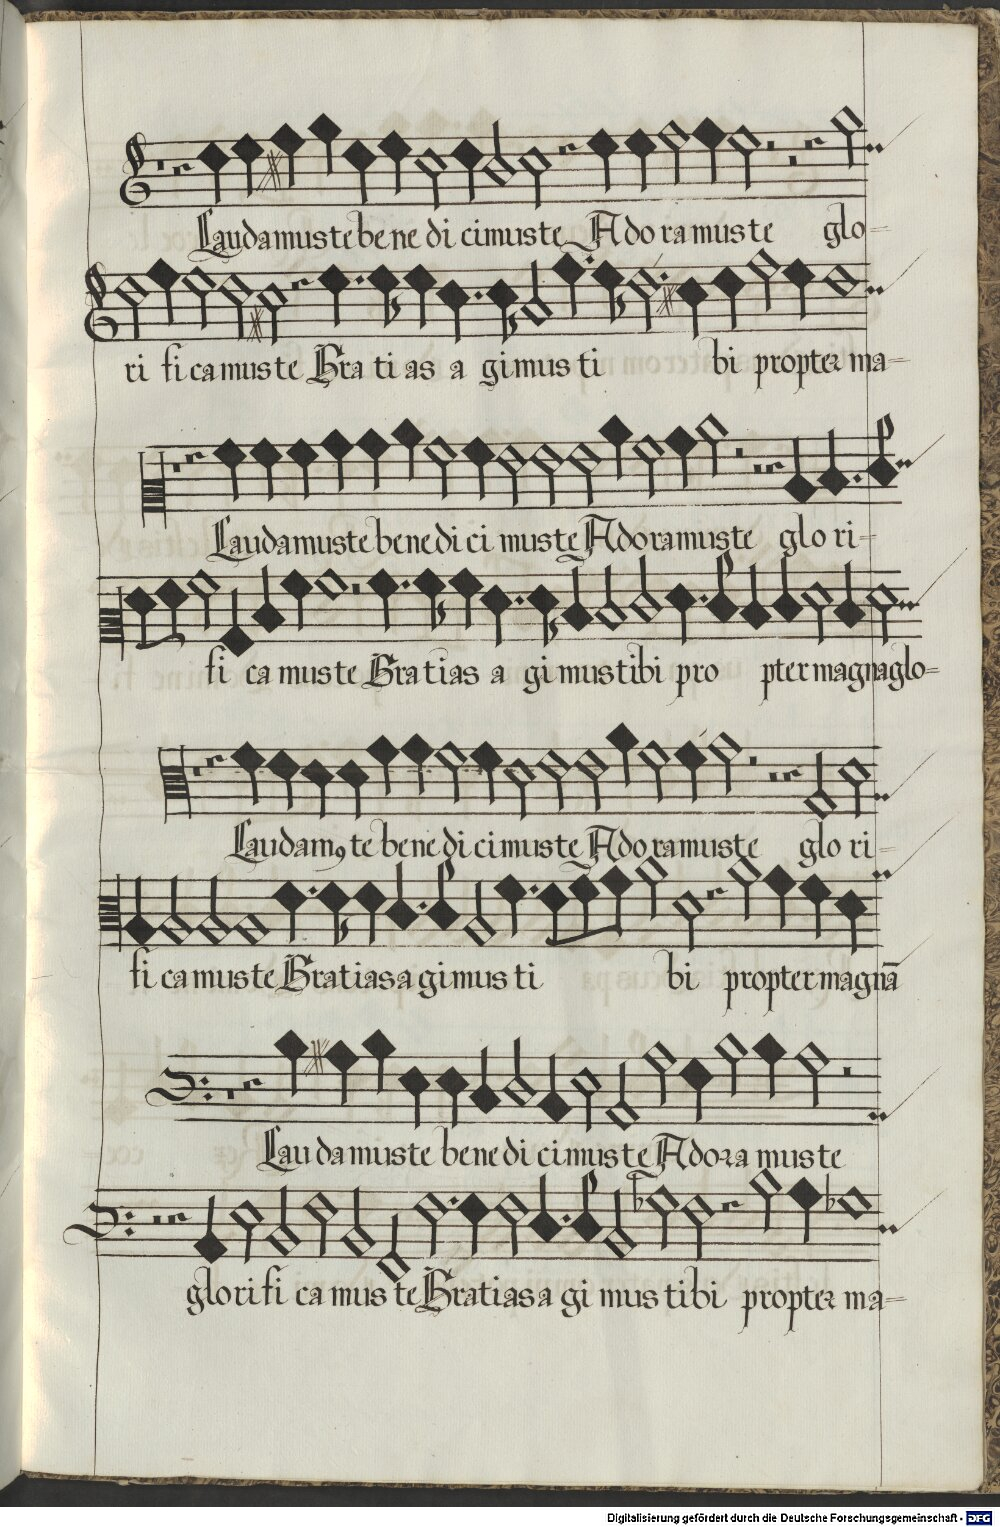 Laudamuste bene di cimuste Ado ramus te glo=
ri fi ca mus te Gra ti as a gi mus ti bi propter ma=
Laudamuste bene di ci muste Adoramuste glo ri=
fi ca mus te Gra tias a gi mus tibi pro pter magna glo=
Laudamꝰ te bene di cimuste Ado ramuste glo ri=
fi ca muste Gratias a gimus ti bi propter magnā
Lau da muste bene di ci muste Adora muste
glo ri fi ca mus te Gratias a gi mus ti bi propter ma=
Digitalisierung gefördert durch die Deutsche Forschungsgemeinschaft - DFG